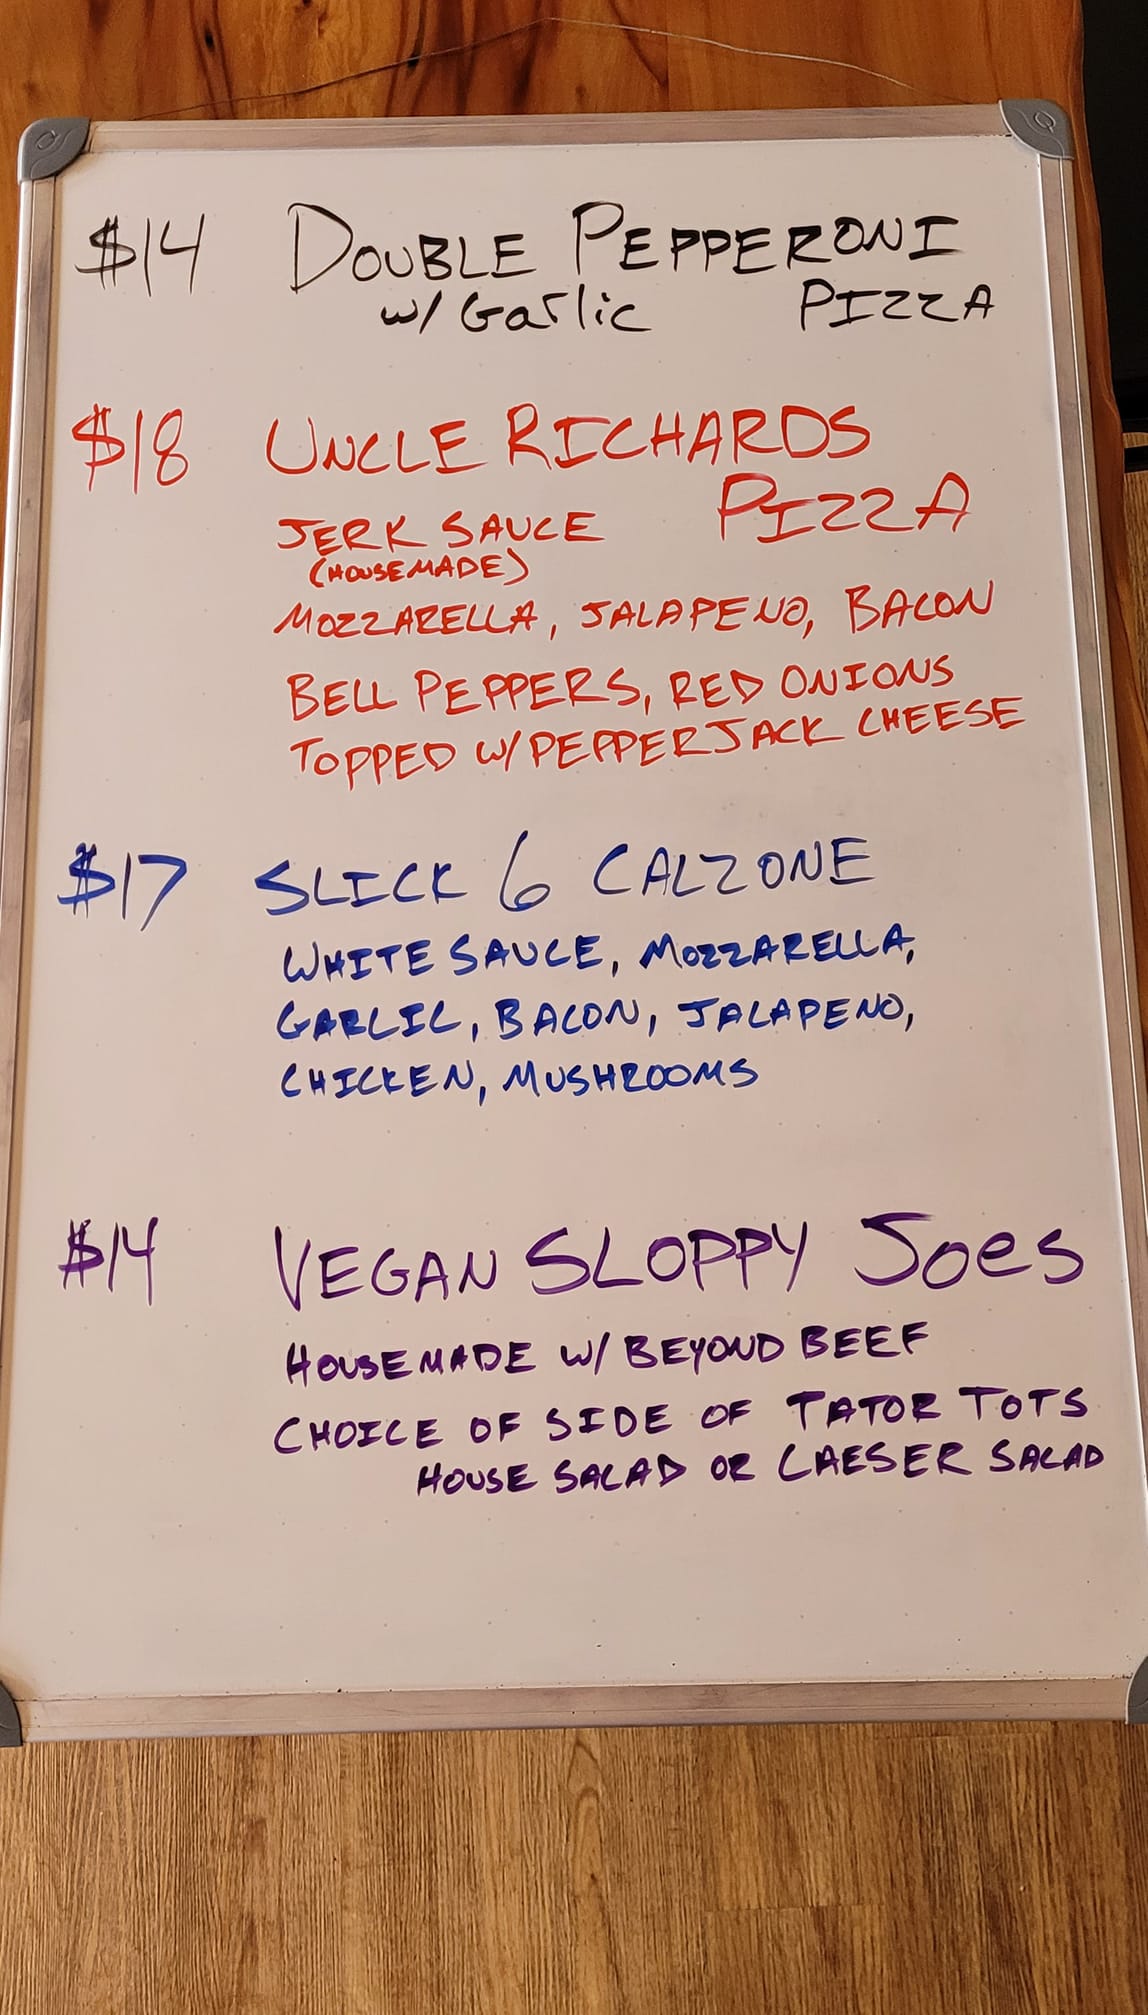 $14 DOUBLE PEPPERONI
w/ Garlic PIZZA
$18 UNCLE RICHARDS
PIZZA
JERK SAUCE
(HOUSEMADE)
MOZZARELLA, JALAPENO, BACON
BELL PEPPERS, RED ONIONS
TOPPED W/ PEPPERJACK CHEESE
$17 SLICK 6 CALZONE
WHITE SAUCE, MOZZARELLA,
GARLIC, BACON, JALAPENO,
CHICKEN, MUSHROOMS
$14 VEGAN SLOPPY Joes
HOUSEMADE W/ BEYOND BEEF
CHOICE OF SIDE OF TATOR TOTS
HOUSE SALAD OR CAESER SALAD